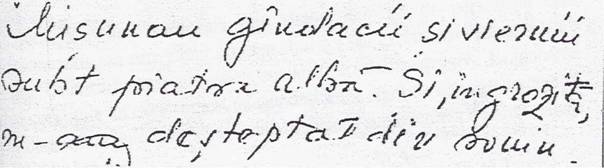 Misunau gîndacii si viermii
subt piatra albă. Si, îngrozită,
m-am deşteptat din somn.